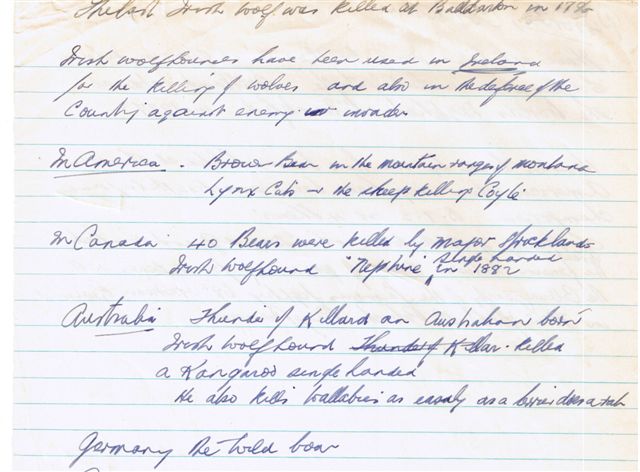 The last Irish Wolf was killed at Baltinglass in 18
Irish wolfhounds have been used in Ireland
for the killing of wolves and also in the defence of the
Country against enemy or invader
In America. Brown Bear in the mountain ranges of montana
Lynx Cats + the sheep killing Coyte
In Canada 40 Bears were killed by Major Stricklands
Irish Wolfhound "Neptune" single handed in 1882
Australia Thunder of Killard an Australian born
Irish Wolfhound Thunder of Killar. killed
a Kangaroo single handed
He also kills Wallabies as easily as a terrier does a rat
Germany The Wild boar